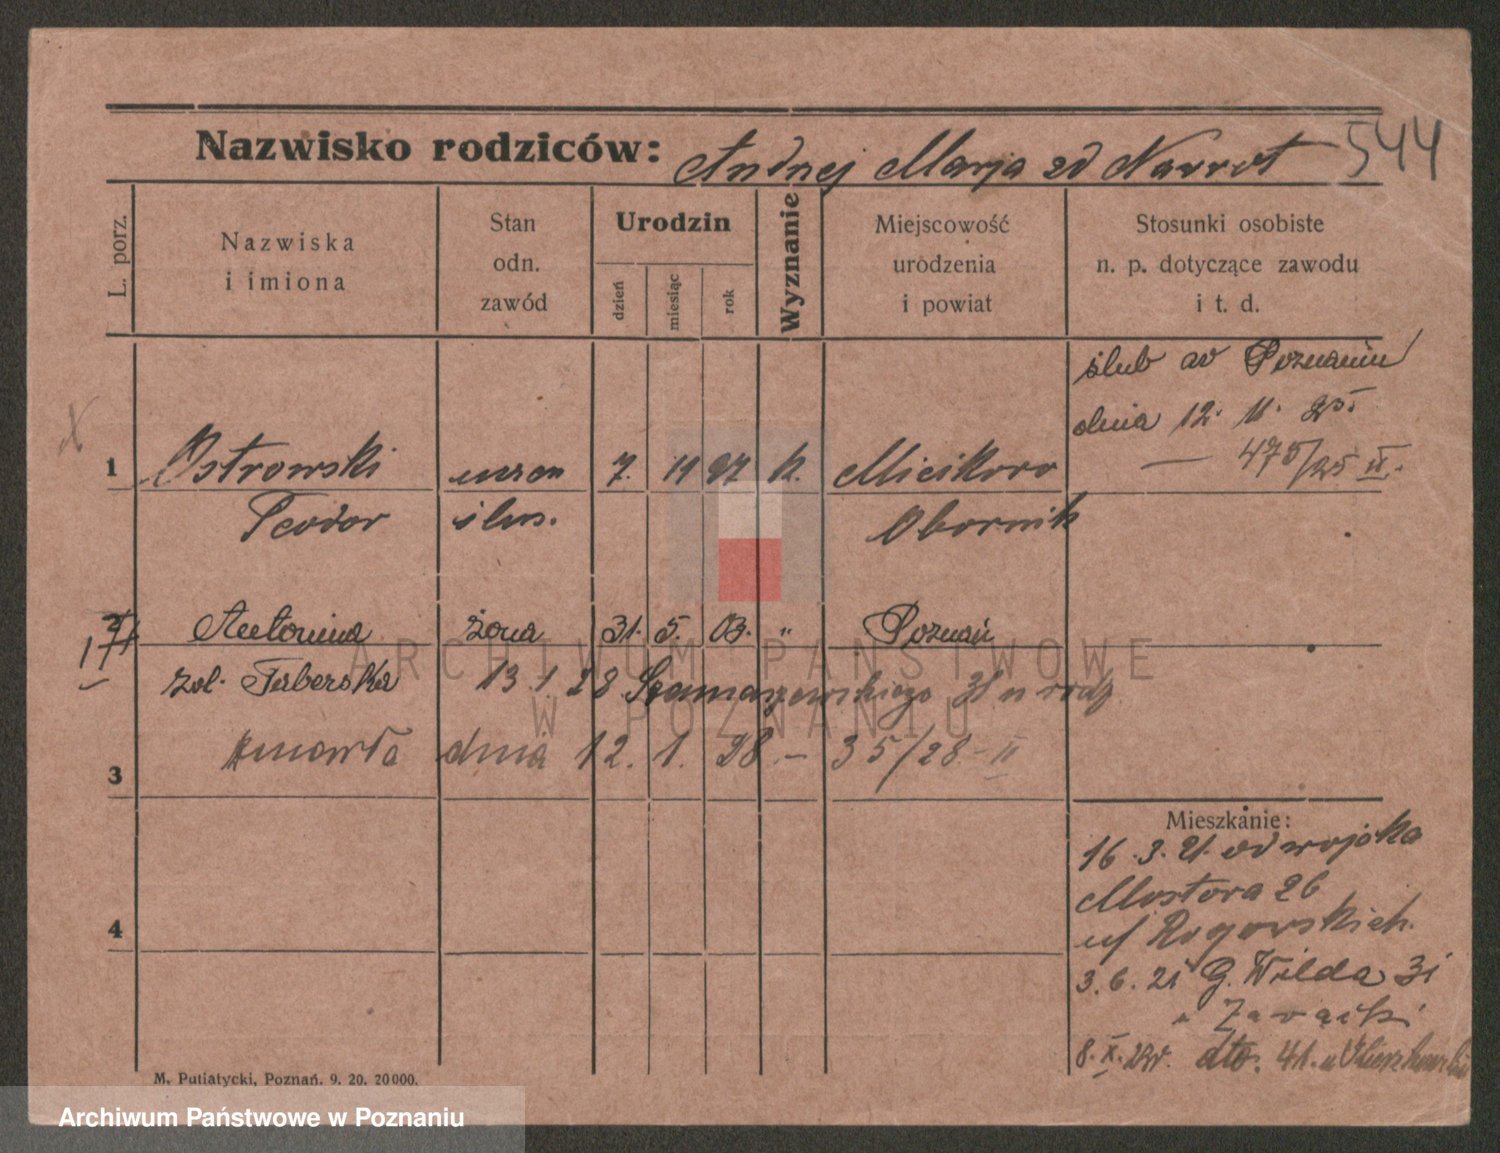 Nazwisko rodziców: Andrzej Marja zd Nawrot 544
L. porz.
Nazwiska
i imiona
Stan
odn.
zawód
Urodzin
dzień
miesiąc
rok
Wyznanie
Miejscowość
urodzenia
i powiat
Stosunki osobiste
n. p. dotyczące zawodu
i t. d.
ślub w Poznaniu
dnia 12. 11. 25.
— 475/25 II.
1 Ostrowski 7. 11 97 k.
Teodor ślus. Obornik
2 Antonina żona 31. 5. 03. " Poznań
zol. Taberska 13 1 28
umarła dnia 12. 1. 28. – 35/28 – II
3
Mieszkanie:
16. 3. 21. od wojska
Mostowa 26
u/ Rogowskich.
3. 6. 21 G. Wilda 31
8. X. 22r. dto. 41. u
4
M. Putiatycki, Poznań. 9. 20. 20000.
ARCHIWUM PAŃSTWOWE
W POZNANIU
Archiwum Państwowe w Poznaniu